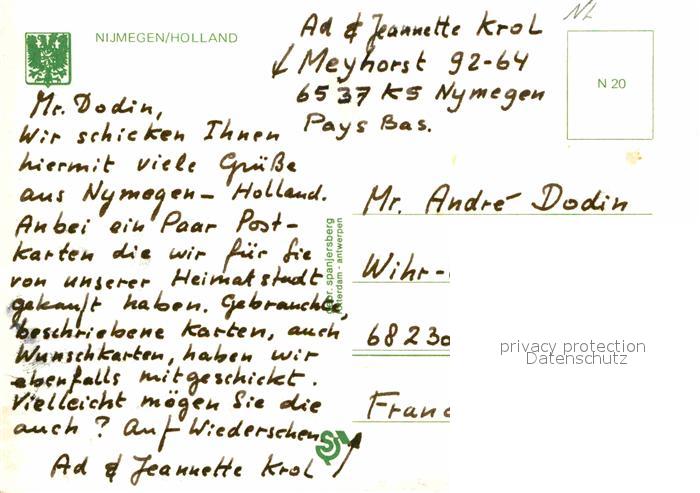 NIJMEGEN/HOLLAND
NL
Ad & Jeannette Krol
Meyhorst 92-64
6537 KS Nymegen
Pays Bas.
N 20
Mr. Dodin,
Wir schicken Ihnen
hiermit viele Grüße
aus Nymegen - Holland.
Anbei ein Paar Post-
karten die wir für Sie
von unserer Heimatstadt
gekauft haben. Gebrauchte,
beschriebene Karten, auch
Wunschkarten, haben wir
ebenfalls mitgeschickt.
Vielleicht mögen Sie die
auch? Auf Wiederschen
Ad & Jeannette Krol
spanjersberg
rotterdam - antwerpen
Mr. André Dodin
Wihr-
68230
Franc
privacy protection
Datenschutz